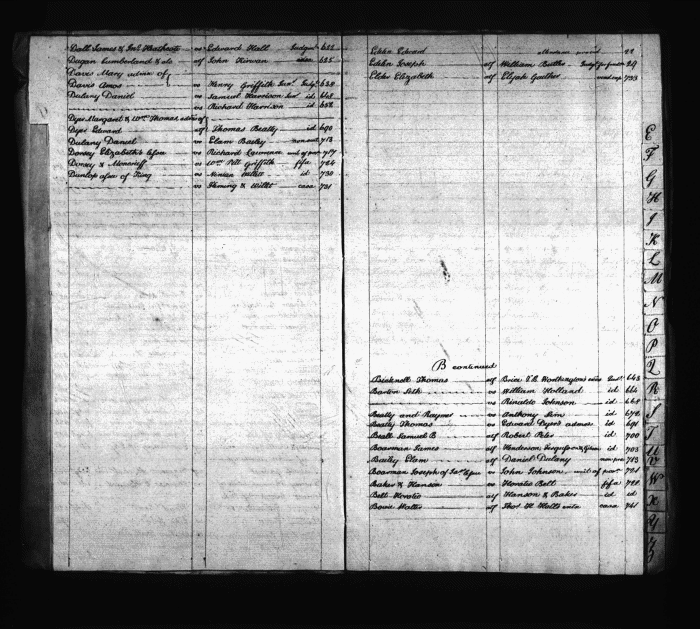 Dall James & Jno. Heathcote vs Edward Hall Judgmt 622
Dugan Cumberland & als atf John Kirwan casa 625
Davis Mary admx of
Davis Amos vs Henry Griffith Senr. Judgt 630
Dulany Daniel vs Samuel Harrison Senr id 648
vs Richard Harrison id 652
Dyer Margaret & Wm. Thomas admr of
Dyer Edward atf Thomas Beatty id 690
Dulany Daniel vs Elam Bailey 713
Dorsey Elizabeth's vs Richard 717
Dorsey & Moncrieff vs Wm. Pitt Griffith ffa 724
Dunlop of King vs Ninian id 730
vs Fleming & Wills casa 731
Edelen Edward 22
Edelen Joseph atf William Bailes 29
Elder Elizabeth atf Elijah Gaither 733
B continued
Bicknell Thomas atf Brice T. B. Worthington's Judt 643
Barton Seth vs William Holland id 664
vs Rinaldo Johnson id 668
Beatty and Raynes vs Anthony Sim id 678
Beatty Thomas vs Edward Dyer's admrs id 691
Beall Samuel B atf Robert Peter id 700
Boarman James atf Henderson Ferguson & Gibson id 703
Bailey Elam atf Daniel Dulany 713
Boarman Joseph of vs John Johnson writ of 721
Baker & Hanson vs Horatio Belt ffa
Belt Horatio atf Hanson & Baker id id
Bowie Walter atf Thos. H. Hall's casa 741
E
F
G
H
I
K
L
M
N
O
P
Q
R
S
T
U
V
W
X
Y
Z